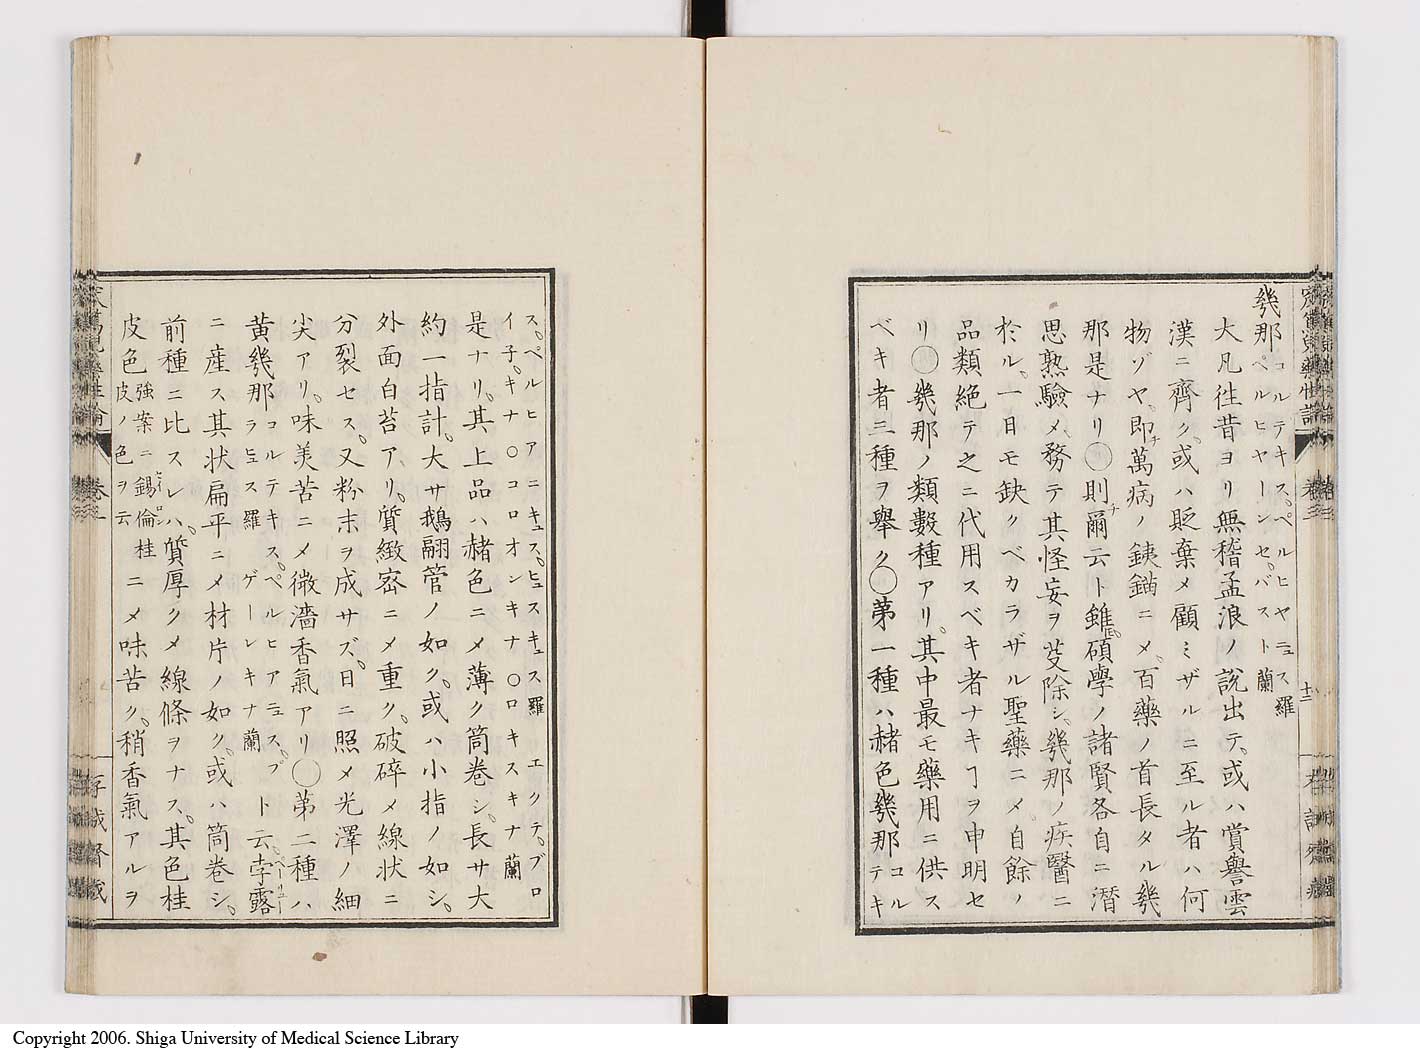 幾那 コルテキス。ペルヒヤニュス 羅
ペルヒヤーンセ。バスト 蘭
大凡徃昔ヨリ無稽孟浪ノ説出テ。或ハ賞譽雲
漢ニ齊ク。或ハ貶棄メ顧ミザルニ至ル者ハ何
物ゾヤ。即チ萬病ノ銕鎦ニメ。百藥ノ首長タル幾
那是ナリ〇則チ爾云ト雖𪜈。碩學ノ諸賢各自ニ潜
思熟驗メ。務テ其怪妄ヲ芟除シ。幾那ノ疾醫ニ
於ル。一日モ缺クベカラザル聖藥ニメ。自餘ノ
品類絶テ之ニ代用スベキ者ナキヿヲ申明セ
リ〇幾那ノ類數種アリ。其中最モ藥用ニ供ス
ベキ者三種ヲ舉ク〇第一種ハ赭色幾那 コル
テキ
ス。ペルヒアニキュス。ヒュスキュス 羅 エクテ。ブロ
イ子。キナ〇コロオンキナ〇ロキスキナ 蘭
是ナリ。其上品ハ赭色ニメ薄ク筒卷シ。長サ大
約一指計。大サ鵝翮管ノ如ク。或ハ小指ノ如シ。
外面白苔アリ。質緻密ニメ重ク。破碎メ線状ニ
分裂セス。又粉末ヲ成サズ。日ニ照メ光澤ノ細
尖アリ。味美苦ニメ微濇香氣アリ〇第二種ハ
黄幾那 コルテキス。ペルヒアニュス。フ
ラヒュス 羅 ゲーレキナ 蘭 ト云孛露ペーリュー
ニ産ス其状扁平ニメ材片ノ如ク。或ハ筒卷シ。
前種ニ比スレハ。質厚クメ線條ヲナス。其色桂
皮色 強案ニ錫倫セイロン桂
皮ノ色ヲ云 ニメ味苦ク。稍香氣アルヲ
卷二
十二
Copyright 2006. Shiga University of Medical Science Library